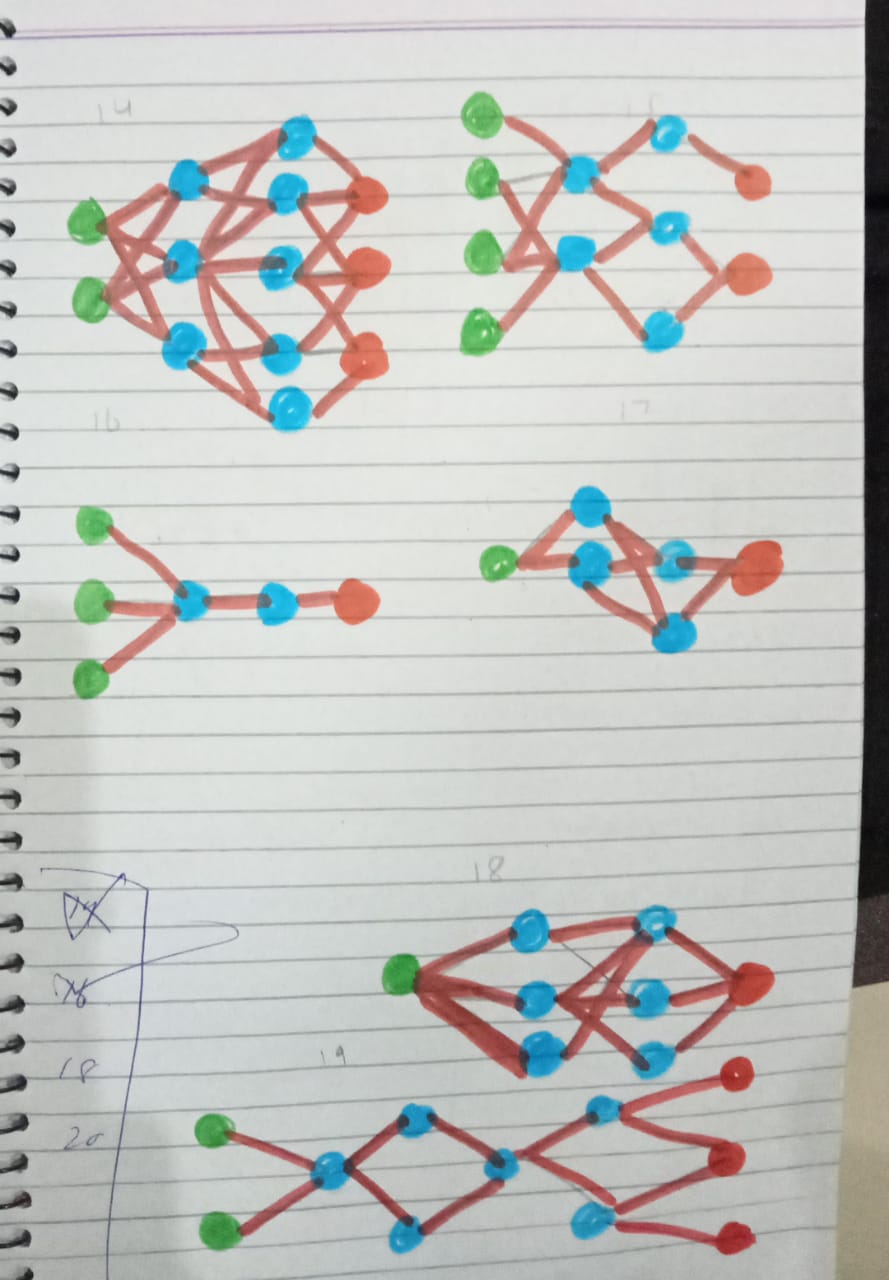 14
15
16
17
18
19
18
20